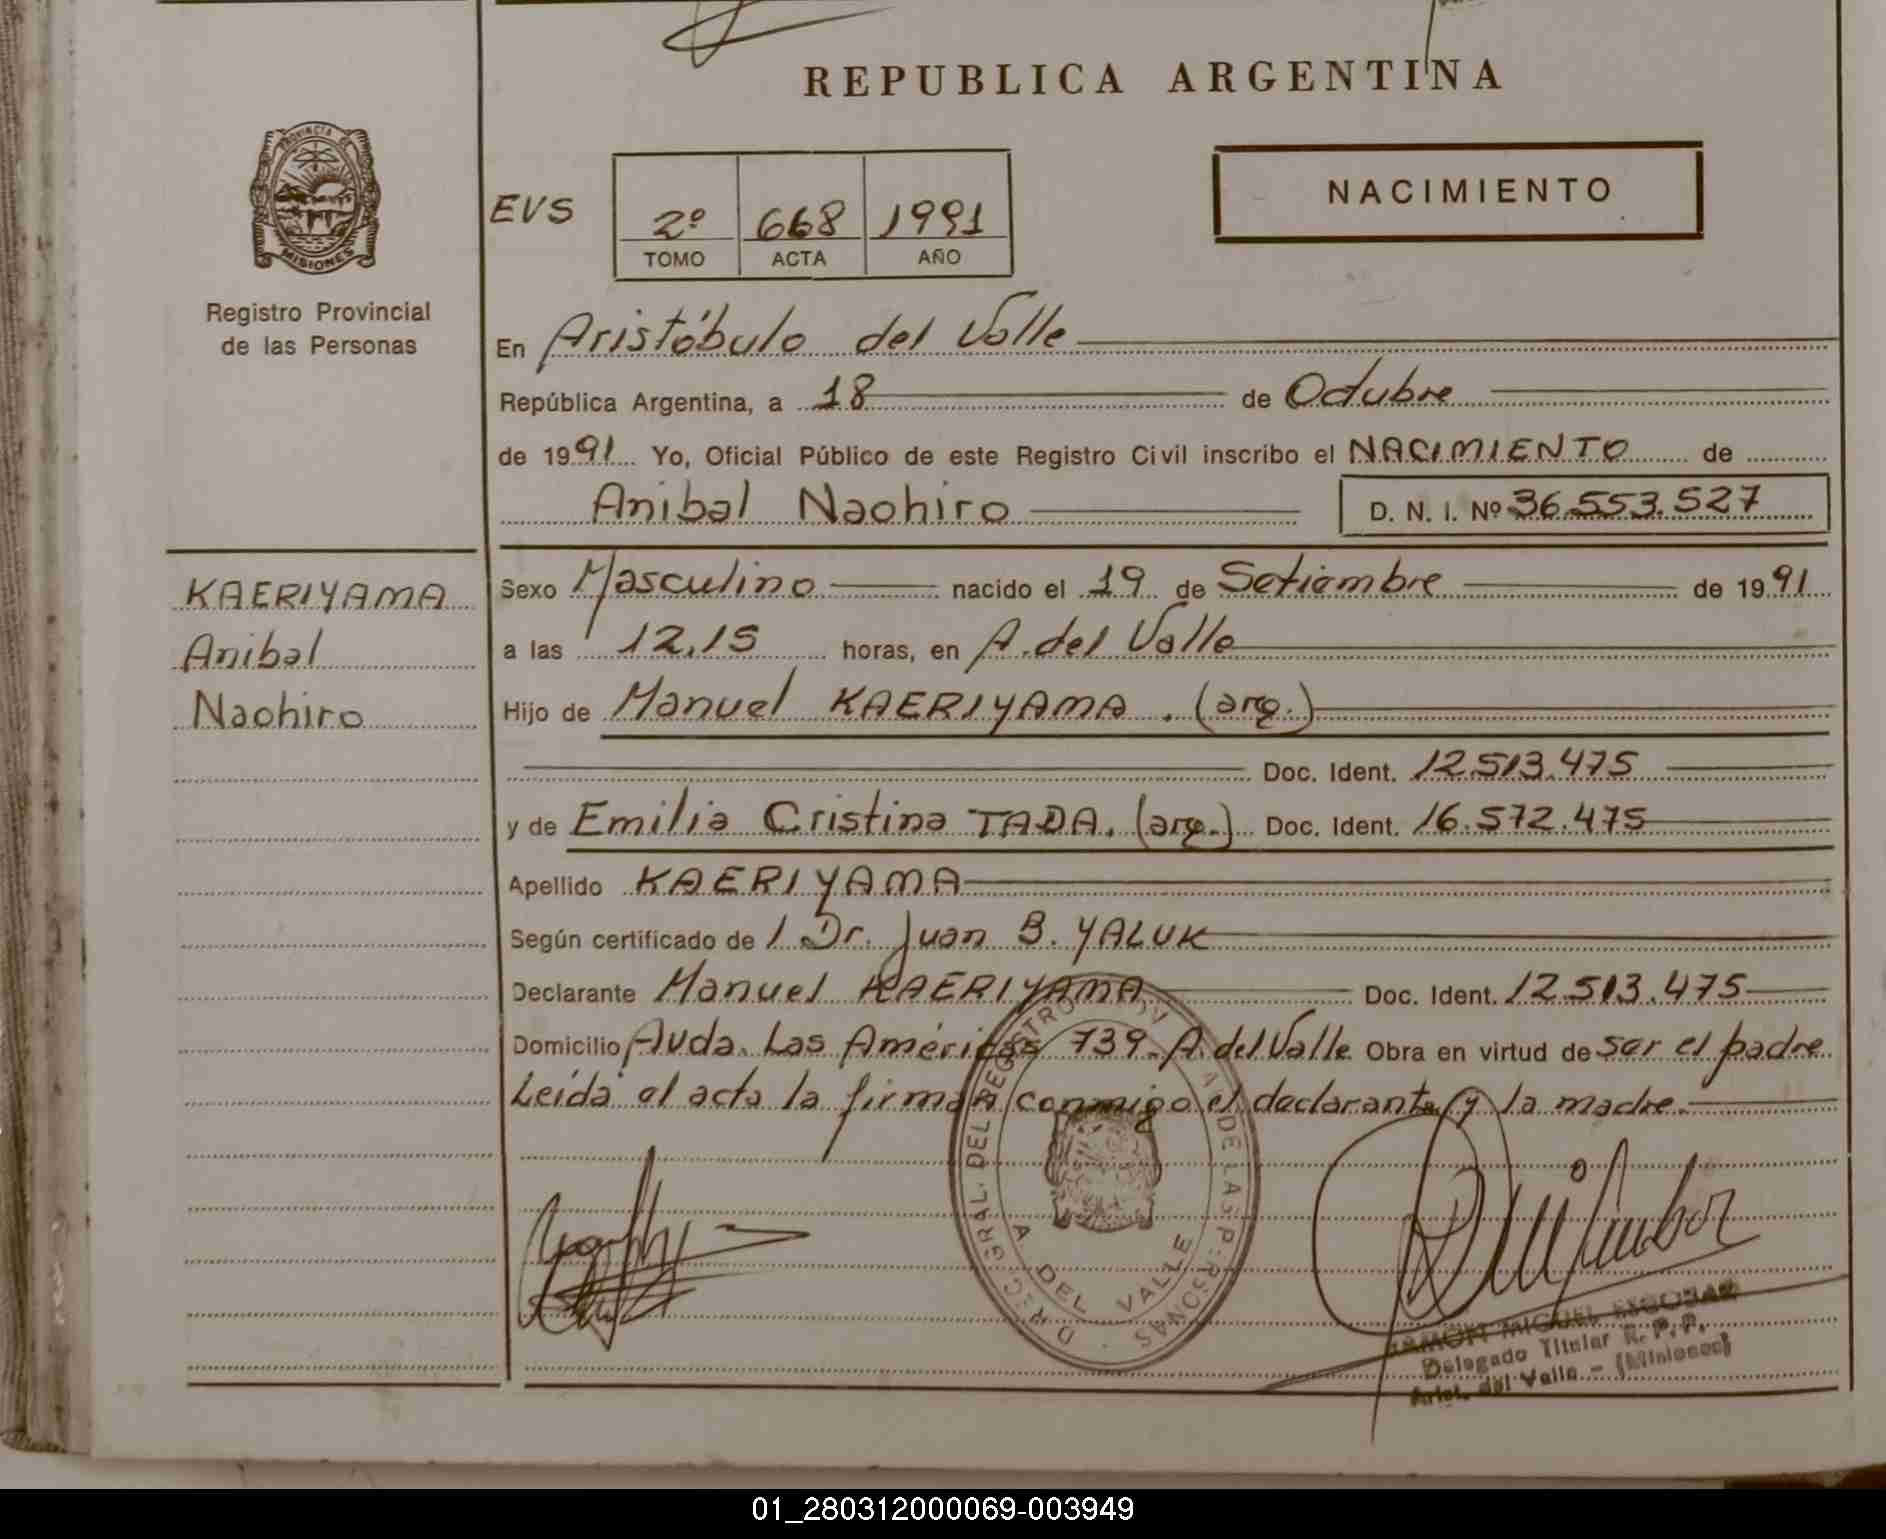 REPUBLICA ARGENTINA
PROVINCIA DE
MISIONES
Registro Provincial
de las Personas
EVS
2º 668 1991
TOMO ACTA AÑO
NACIMIENTO
En Aristóbulo del Valle
República Argentina, a 18 de Octubre
de 1991 Yo, Oficial Público de este Registro Civil inscribo el NACIMIENTO de
Anibal Naohiro D. N. I. Nº 36.553.527
KAERIYAMA
Anibal
Naohiro
Sexo Masculino nacido el 19 de Setiembre de 1991
a las 12,15 horas, en A. del Valle
Hijo de Manuel KAERIYAMA . (arg.)
Doc. Ident. 12.513.475
y de Emilia Cristina TADA. (arg.) Doc. Ident. 16.572.475
Apellido KAERIYAMA
Según certificado de / Dr. Juan B. YALUK
Declarante Manuel KAERIYAMA Doc. Ident. 12.513.475
Domicilio Avda. Las Américas 739. A. del Valle Obra en virtud de ser el padre
Leída el acta la firman conmigo el declarante y la madre.
DIREC. GRAL. DEL REGISTRO DE LAS PERSONAS
A DEL VALLE
RAMON MIGUEL ESCOBAR
Delegado Titular R. P. P.
Arist. del Valle - (Misiones)
01_280312000069-003949